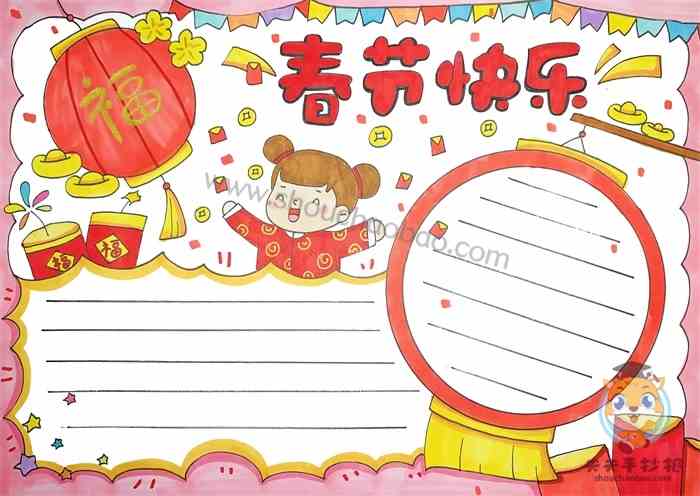 春节快乐
福
福
福
www.shouchaobao.com
天天手抄报
shouchaobao.com